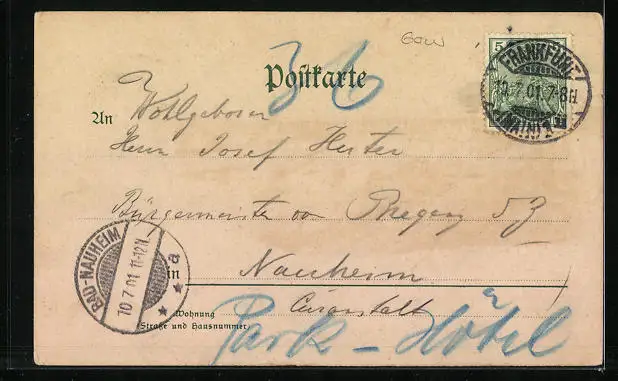 Gow
36
Postkarte
5
FRANKFURT
10.7.01.7-8N
(MAIN)
An Wohlgeboren
Herrn Josef Huter
Bürgermeister von Bregenz d Z
BAD-NAUHEIM
10 7.01. 11-12N.
a
in Nauheim
Curanstalt
Wohnung
(Straße und Hausnummer)
Park - Hôtel